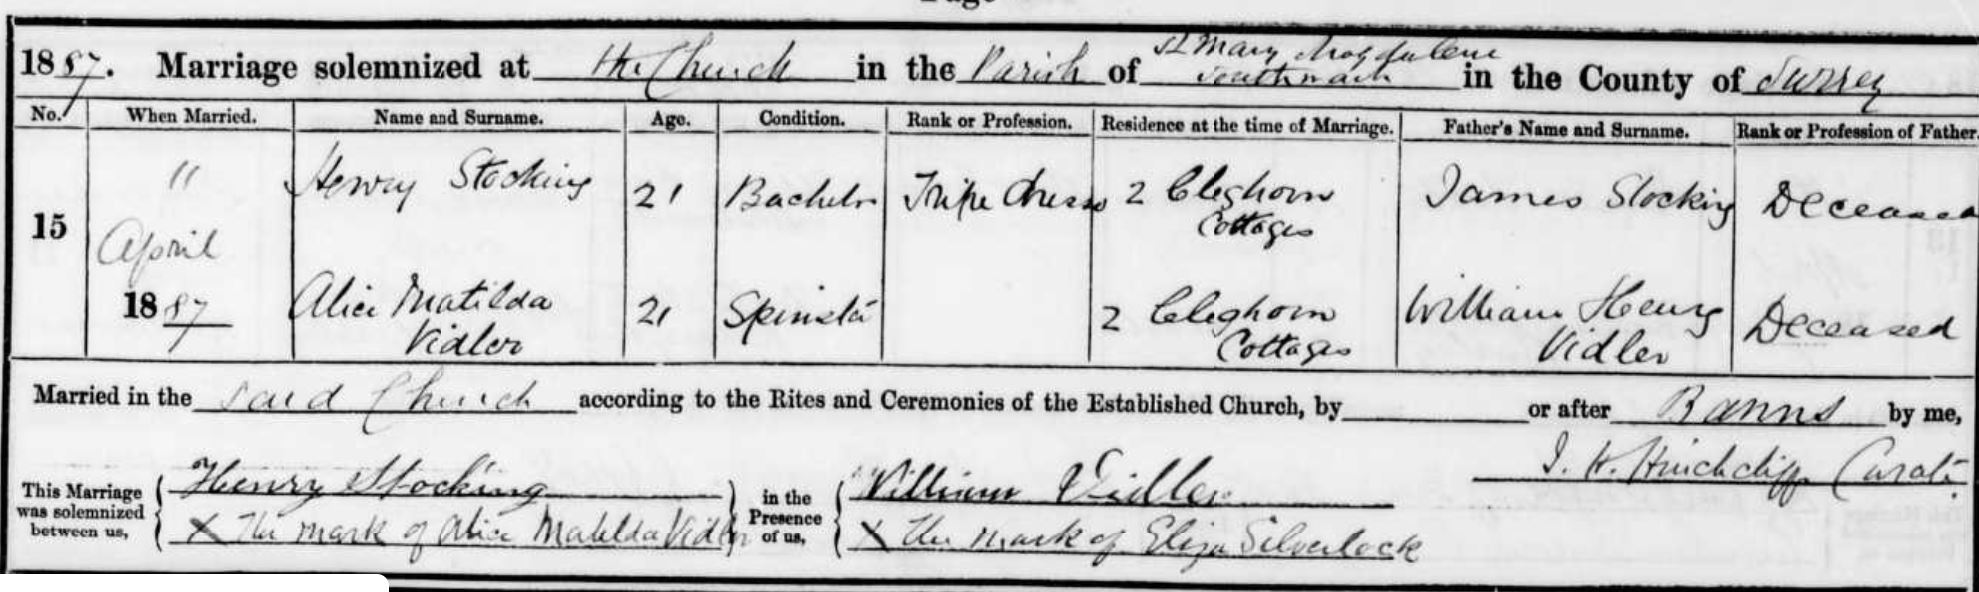 1887. Marriage solemnized at the Church in the Parish of St Mary Magdalene Southwark in the County of Surrey
No. When Married. Name and Surname. Age. Condition. Rank or Profession. Residence at the time of Marriage. Father's Name and Surname. Rank or Profession of Father.
15 " April 1887
Henry Stocking 21 Bachelor Tripe Dresser 2 Cleghorn Cottages James Stocking Deceased
Alice Matilda Vidler 21 Spinster 2 Cleghorn Cottages William Henry Vidler Deceased
Married in the said Church according to the Rites and Ceremonies of the Established Church, by or after Banns by me,
J. H. Hinchcliff Curate
This Marriage was solemnized between us, Henry Stocking
X The mark of Alice Matilda Vidler
in the Presence of us, William Vidler
X The mark of Eliza Silverlock